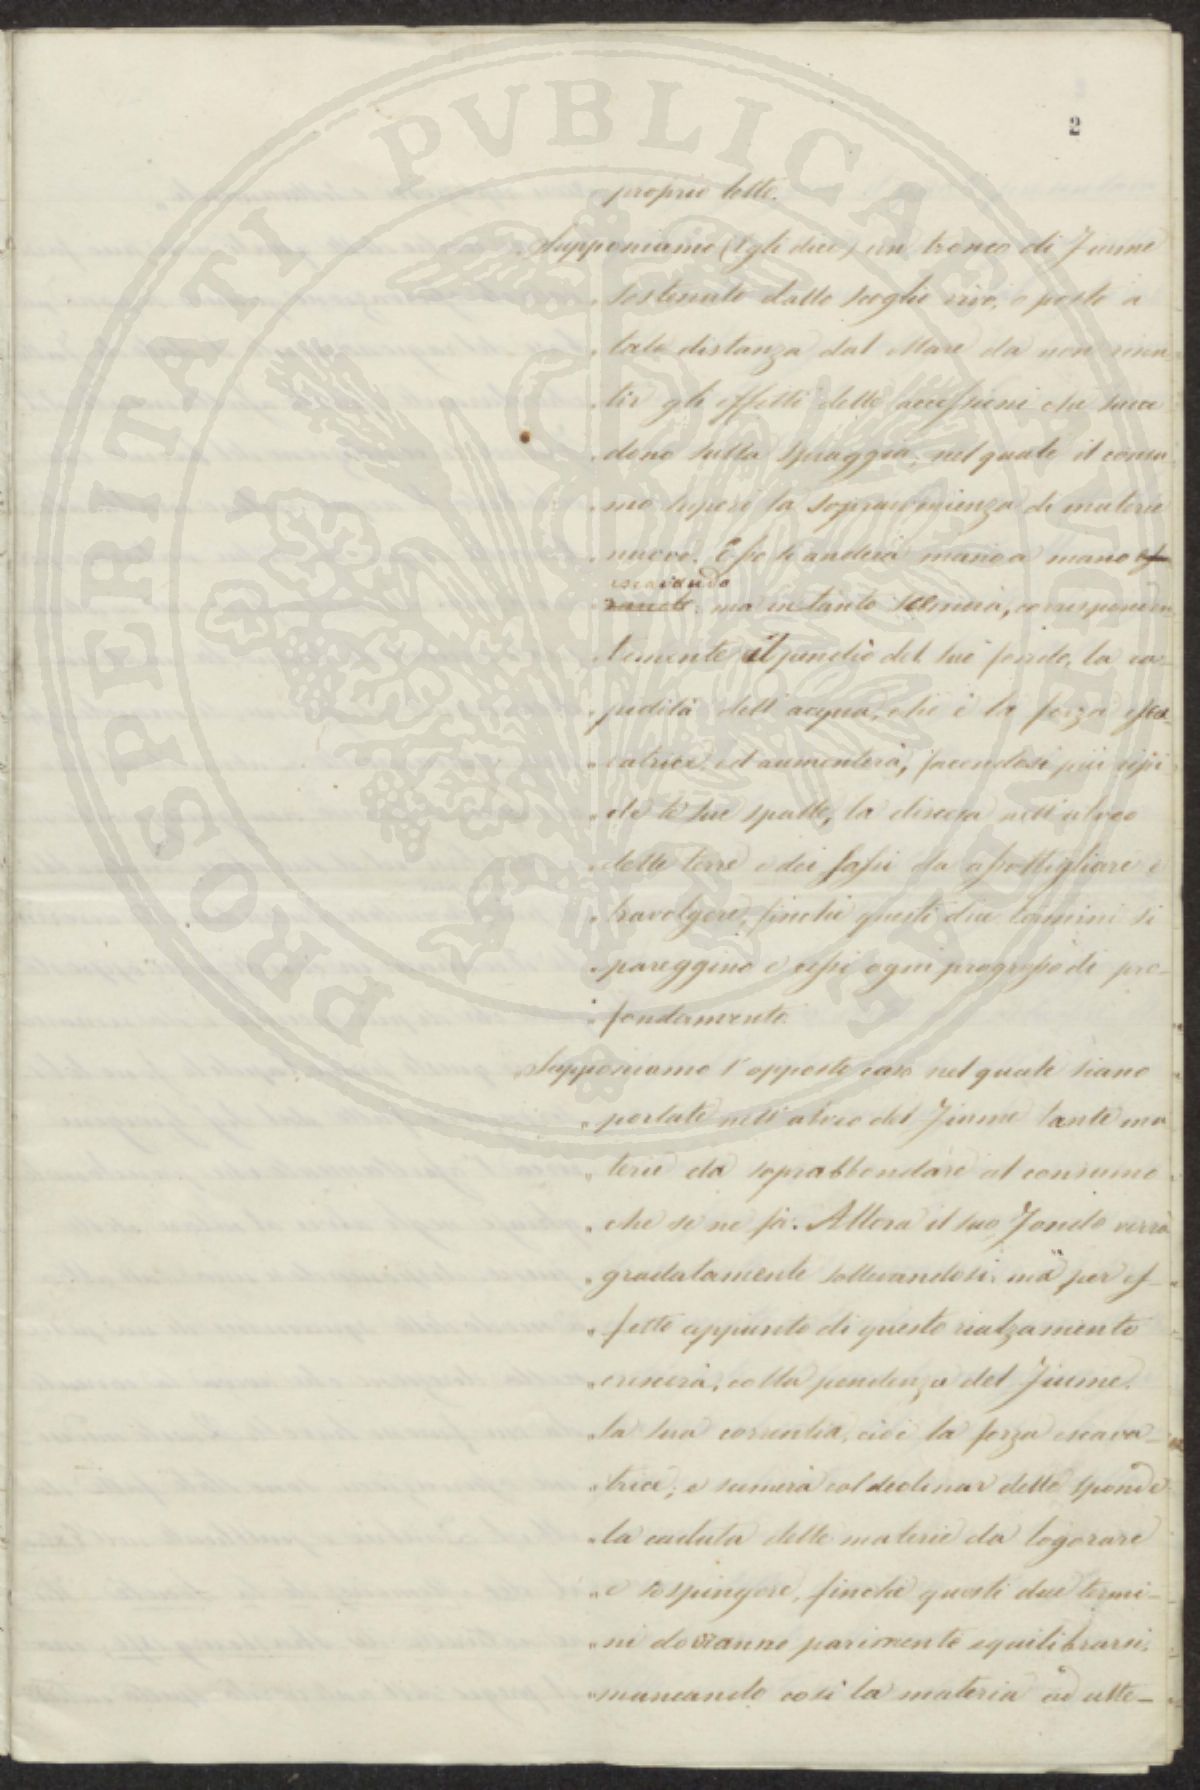 2
„ proprio letto.
„ Supponiamo (Egli dice) un tronco di Fiume
„ sostenuto dallo scoglio vivo, e posto a
„ tale distanza dal Mare da non risen
„ tir gli effetti delle accessioni che succe
„ dono sulla spiaggia, nel quale il consu
„ mo superi la sopravvenienza di materie
„ nuove. Esso si anderà mano a mano
escavando
„ ma intanto scemerà, corrisponden
„ temente il pendio del suo fondo, la ra-
„ pidità dell'acqua, che è la forza esca-
„ vatrice, ed aumenterà, facendosi più ripi
„ de le sue spalle, la discesa nell'alveo
„ delle terre e dei sassi da assottigliare e
„ travolgere, finchè questi due termini si
„ pareggino e cessi ogni progresso di pro-
„ fondamento.
„ Supponiamo l'opposto caso nel quale siano
„ portate nell'alveo del Fiume tante ma
„ terie da soprabbondare al consumo
„ che se ne fa. Allora il suo Fondo verrà
„ gradatamente sollevandosi, ma per ef-
„ fetto appunto di questo rialzamento
„ crescerà, colla pendenza del Fiume,
„ la sua correntia, cioè la forza escava-
„ trice; e scemerà col declinar delle sponde
„ la caduta delle materie da logorare
„ e sospingere, finchè questi due termi-
„ ni dovranno parimente equilibrarsi,
„ mancando così la materia ad ulte-
PROSPERITATI PVBLICAE